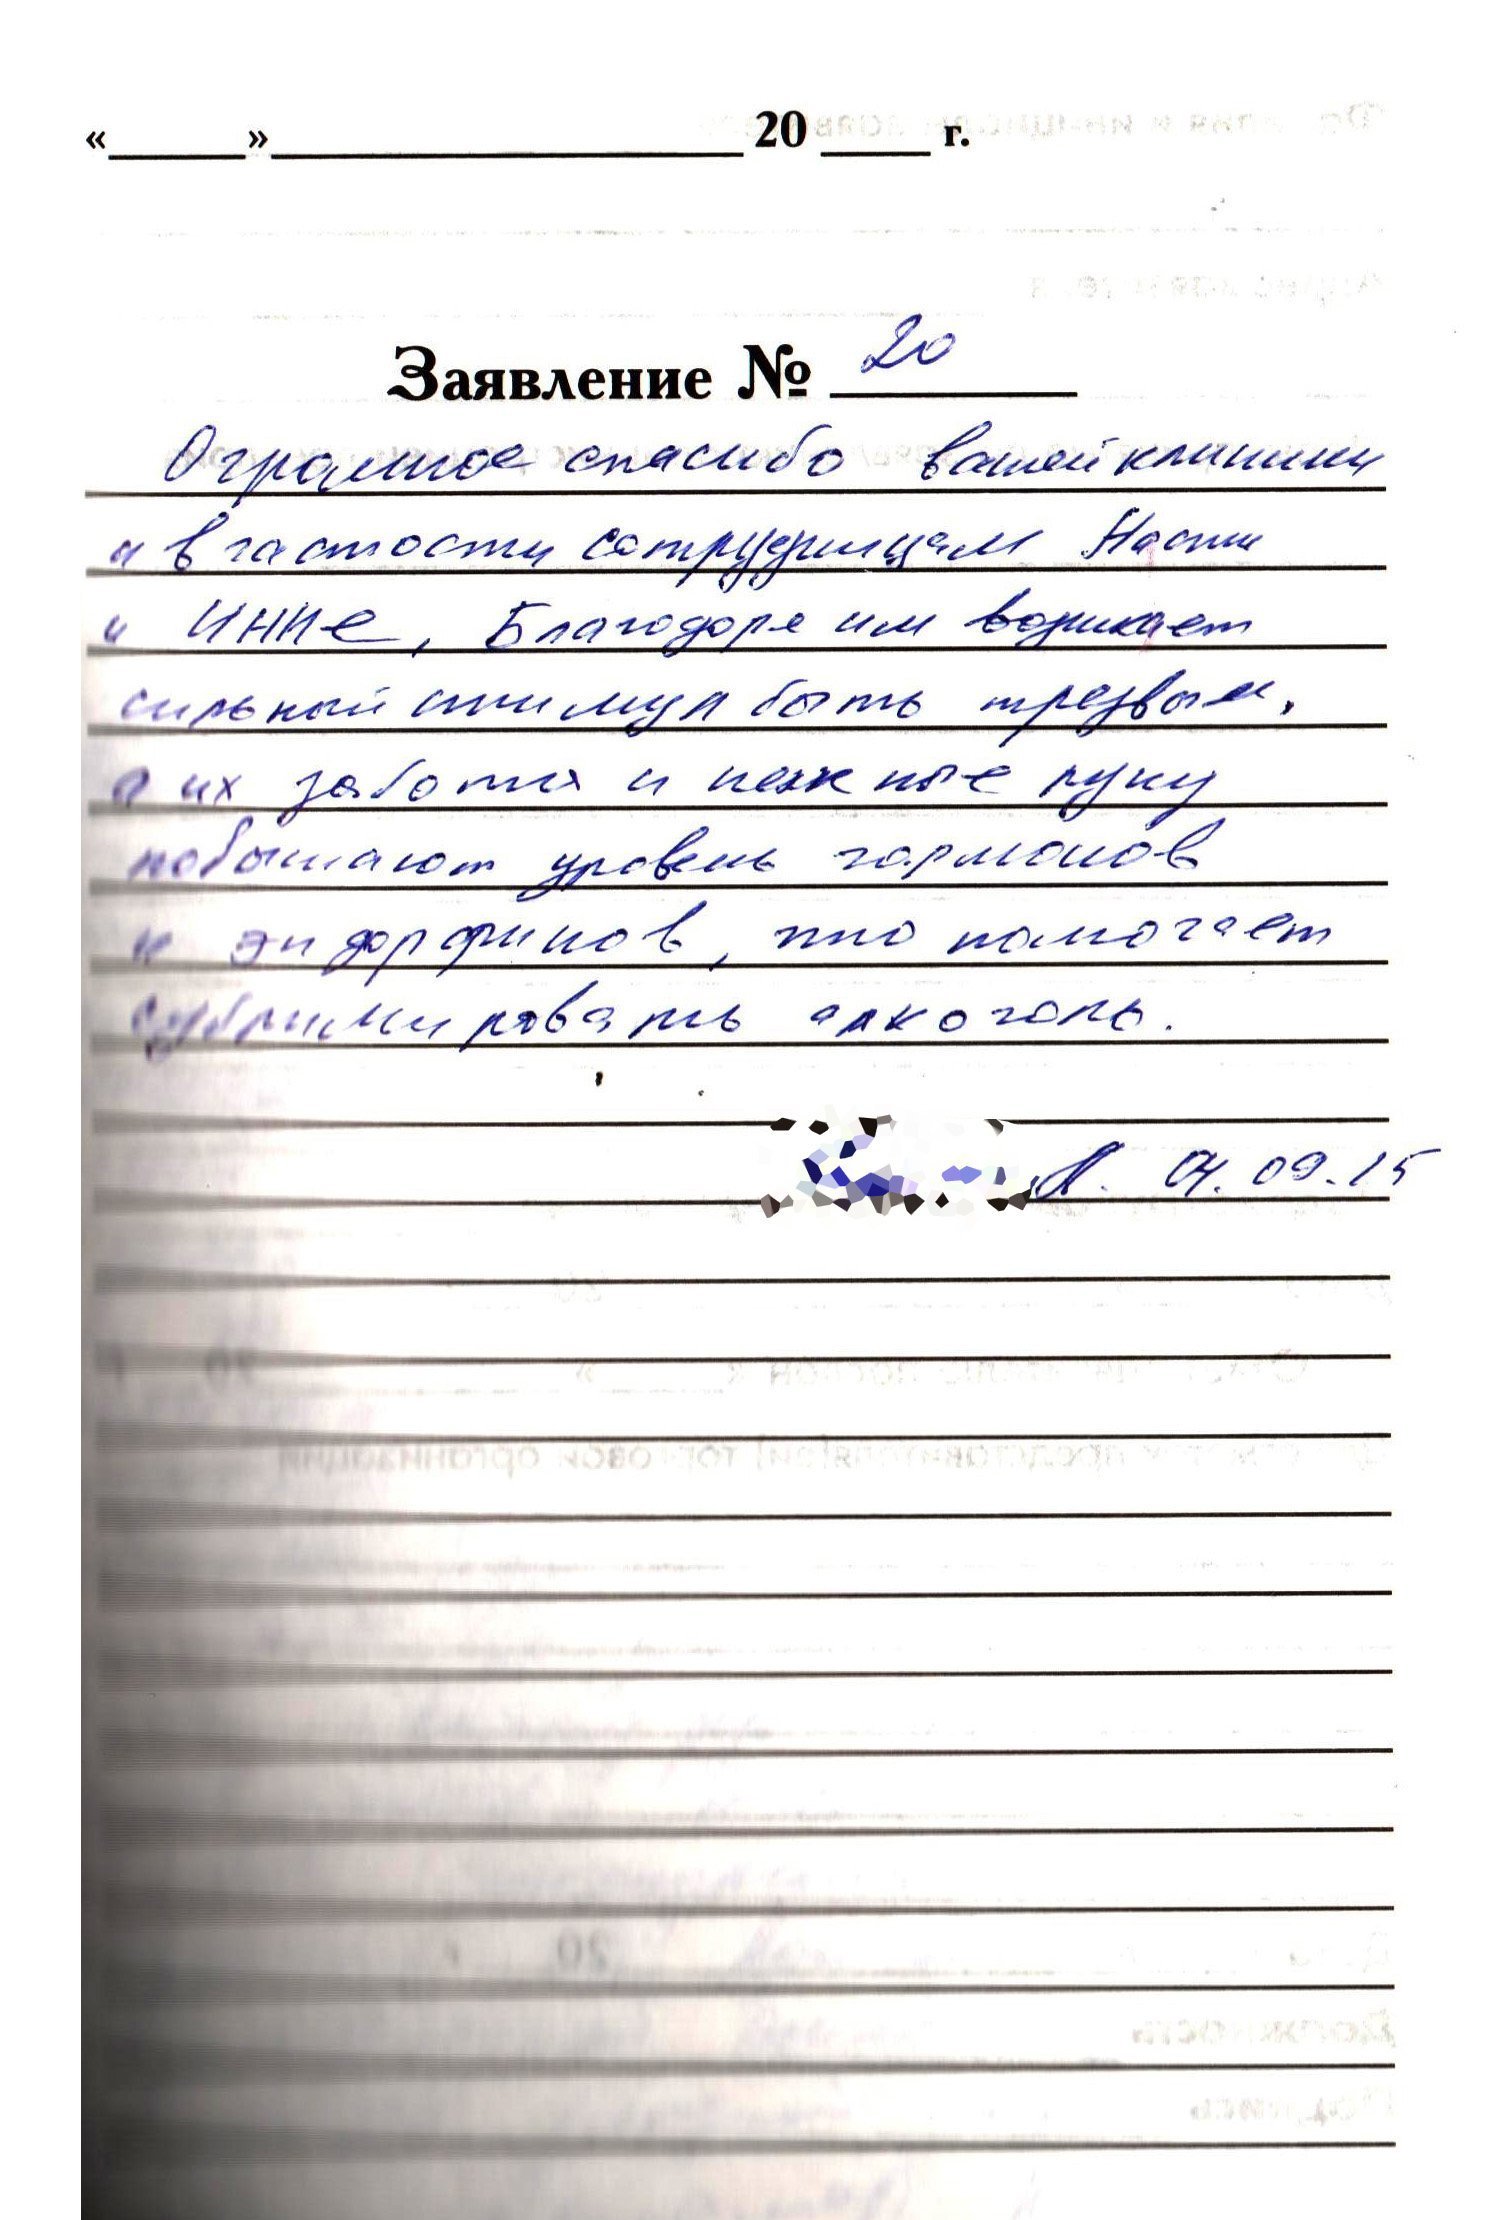 «____» ____________ 20 ___ г.
Заявление № 20
Огромное спасибо вашей клиники
и в частости сотрудницам Насти
и ИННЕ, Благодоря им возникает
сильный стимул быть трезвым,
а их забота и нежные руки
повышают уровень гармонов
и эндорфинов, что помогает
сублимировать алкоголь.
А. 04.09.15